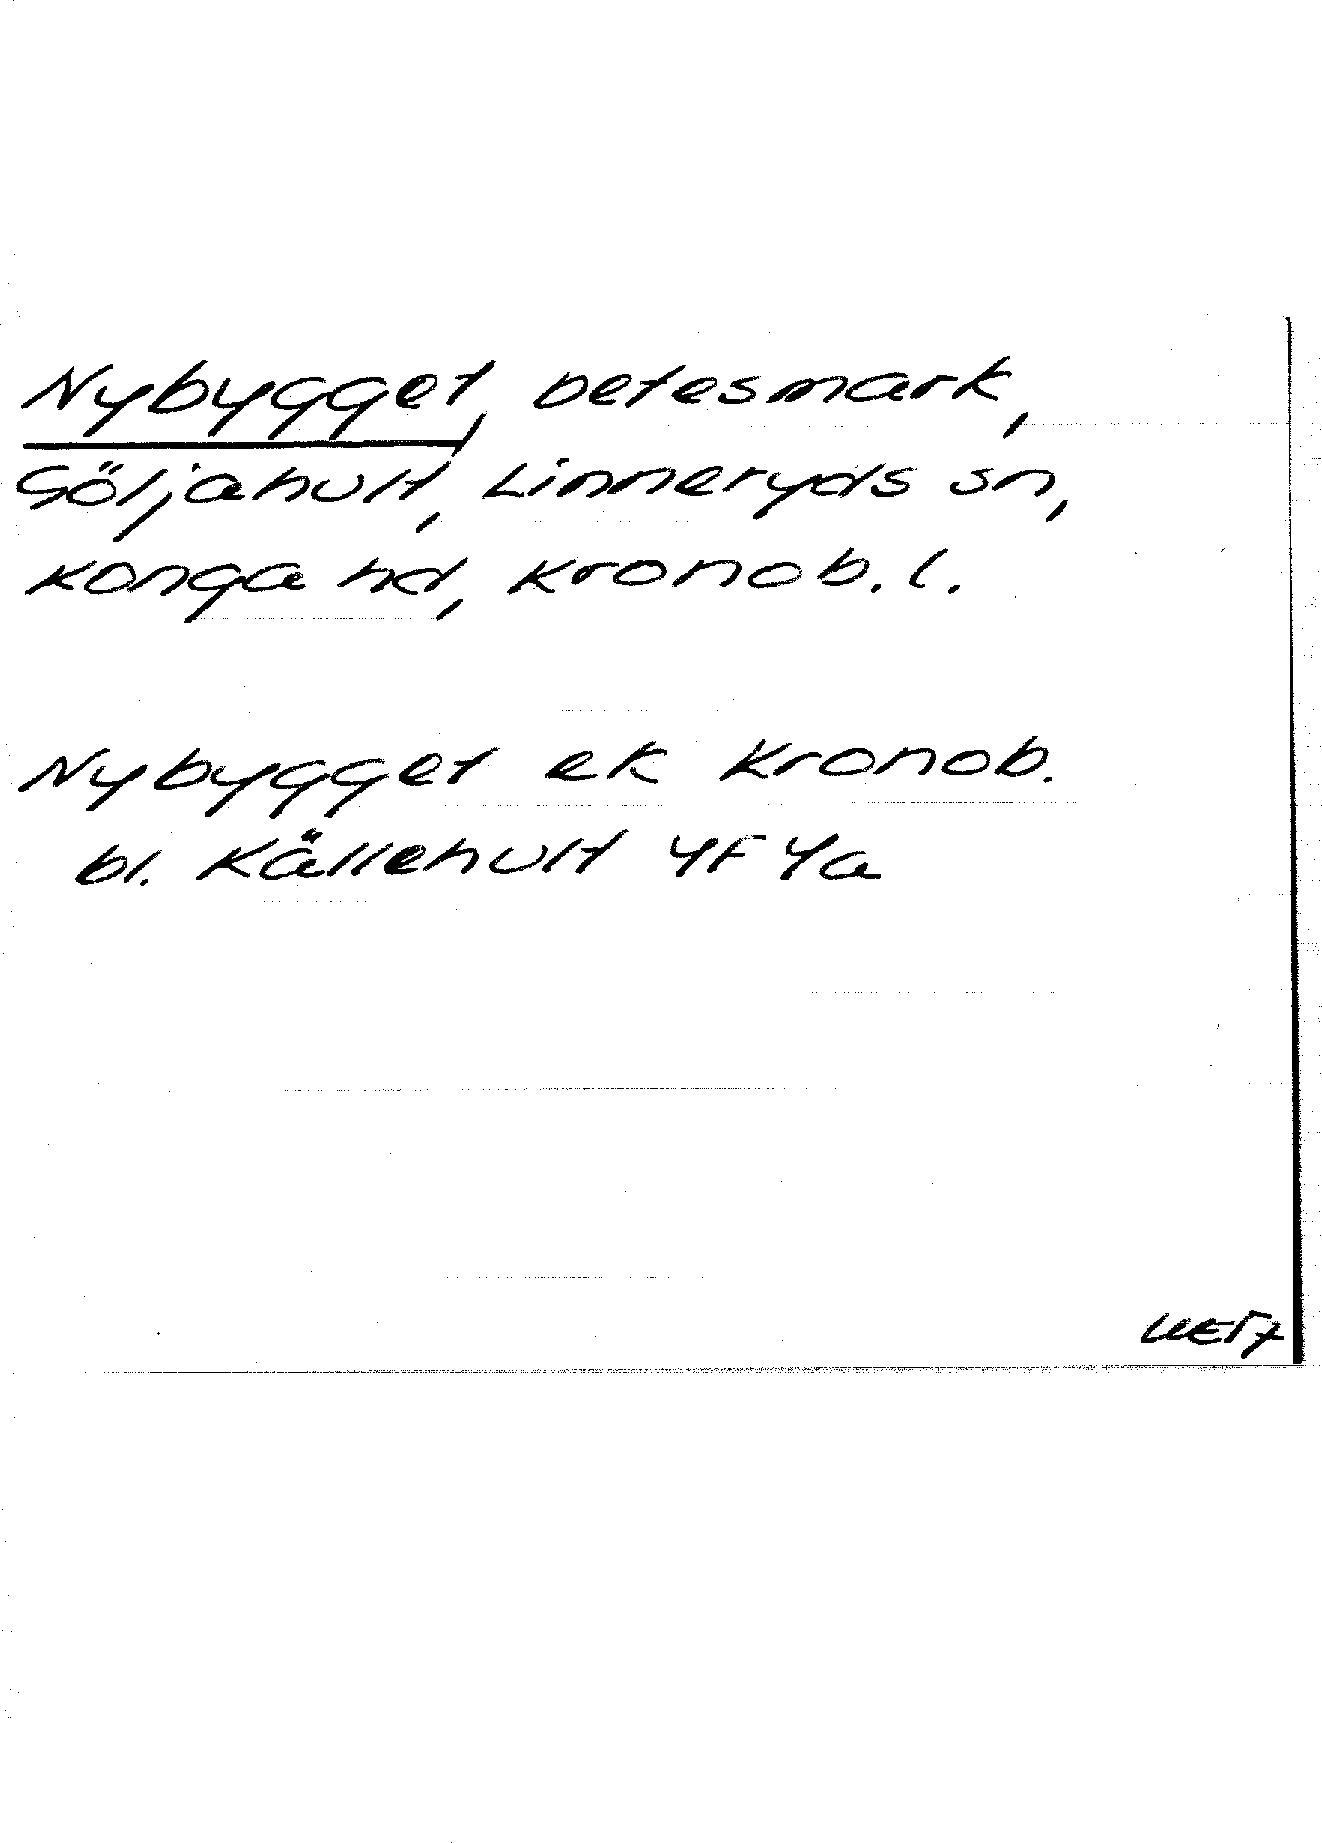 Nybygget, betesmark,
Göljahult, Linneryds sn,
Konga hd, Kronob. l.
Nybygget ek Kronob.
bl. Källehult 4F 4a